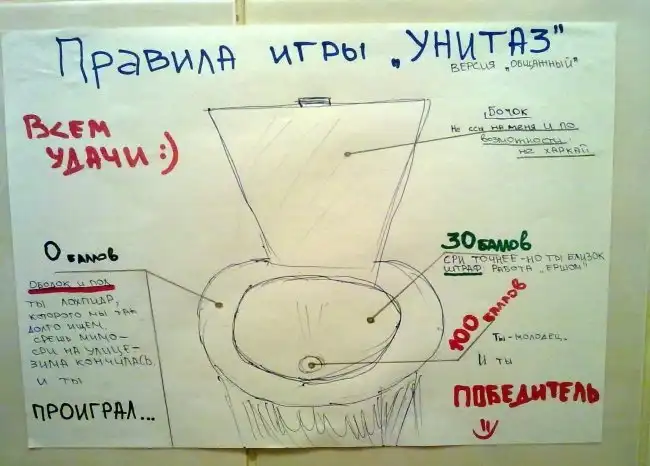 Правила игры „УНИТАЗ"
ВЕРСИЯ „ОБЩАЖНЫЙ"
ВСЕМ
УДАЧИ :)
Бочок
Не ссы на меня и по
возможности
не харкай
0 баллов
Ободок и пол
ТЫ
которого мы так
долго ищем.
срешь мимо-
сри на улице-
зима кончилась.
И ТЫ
ПРОИГРАЛ...
30 баллов
СРИ ТОЧНЕЕ-НО ТЫ БЛИЗОК
ШТРАФ РАБОТА „ЕРШОМ"
100 баллов
Ты-молодец.
И ты
ПОБЕДИТЕЛЬ
=)